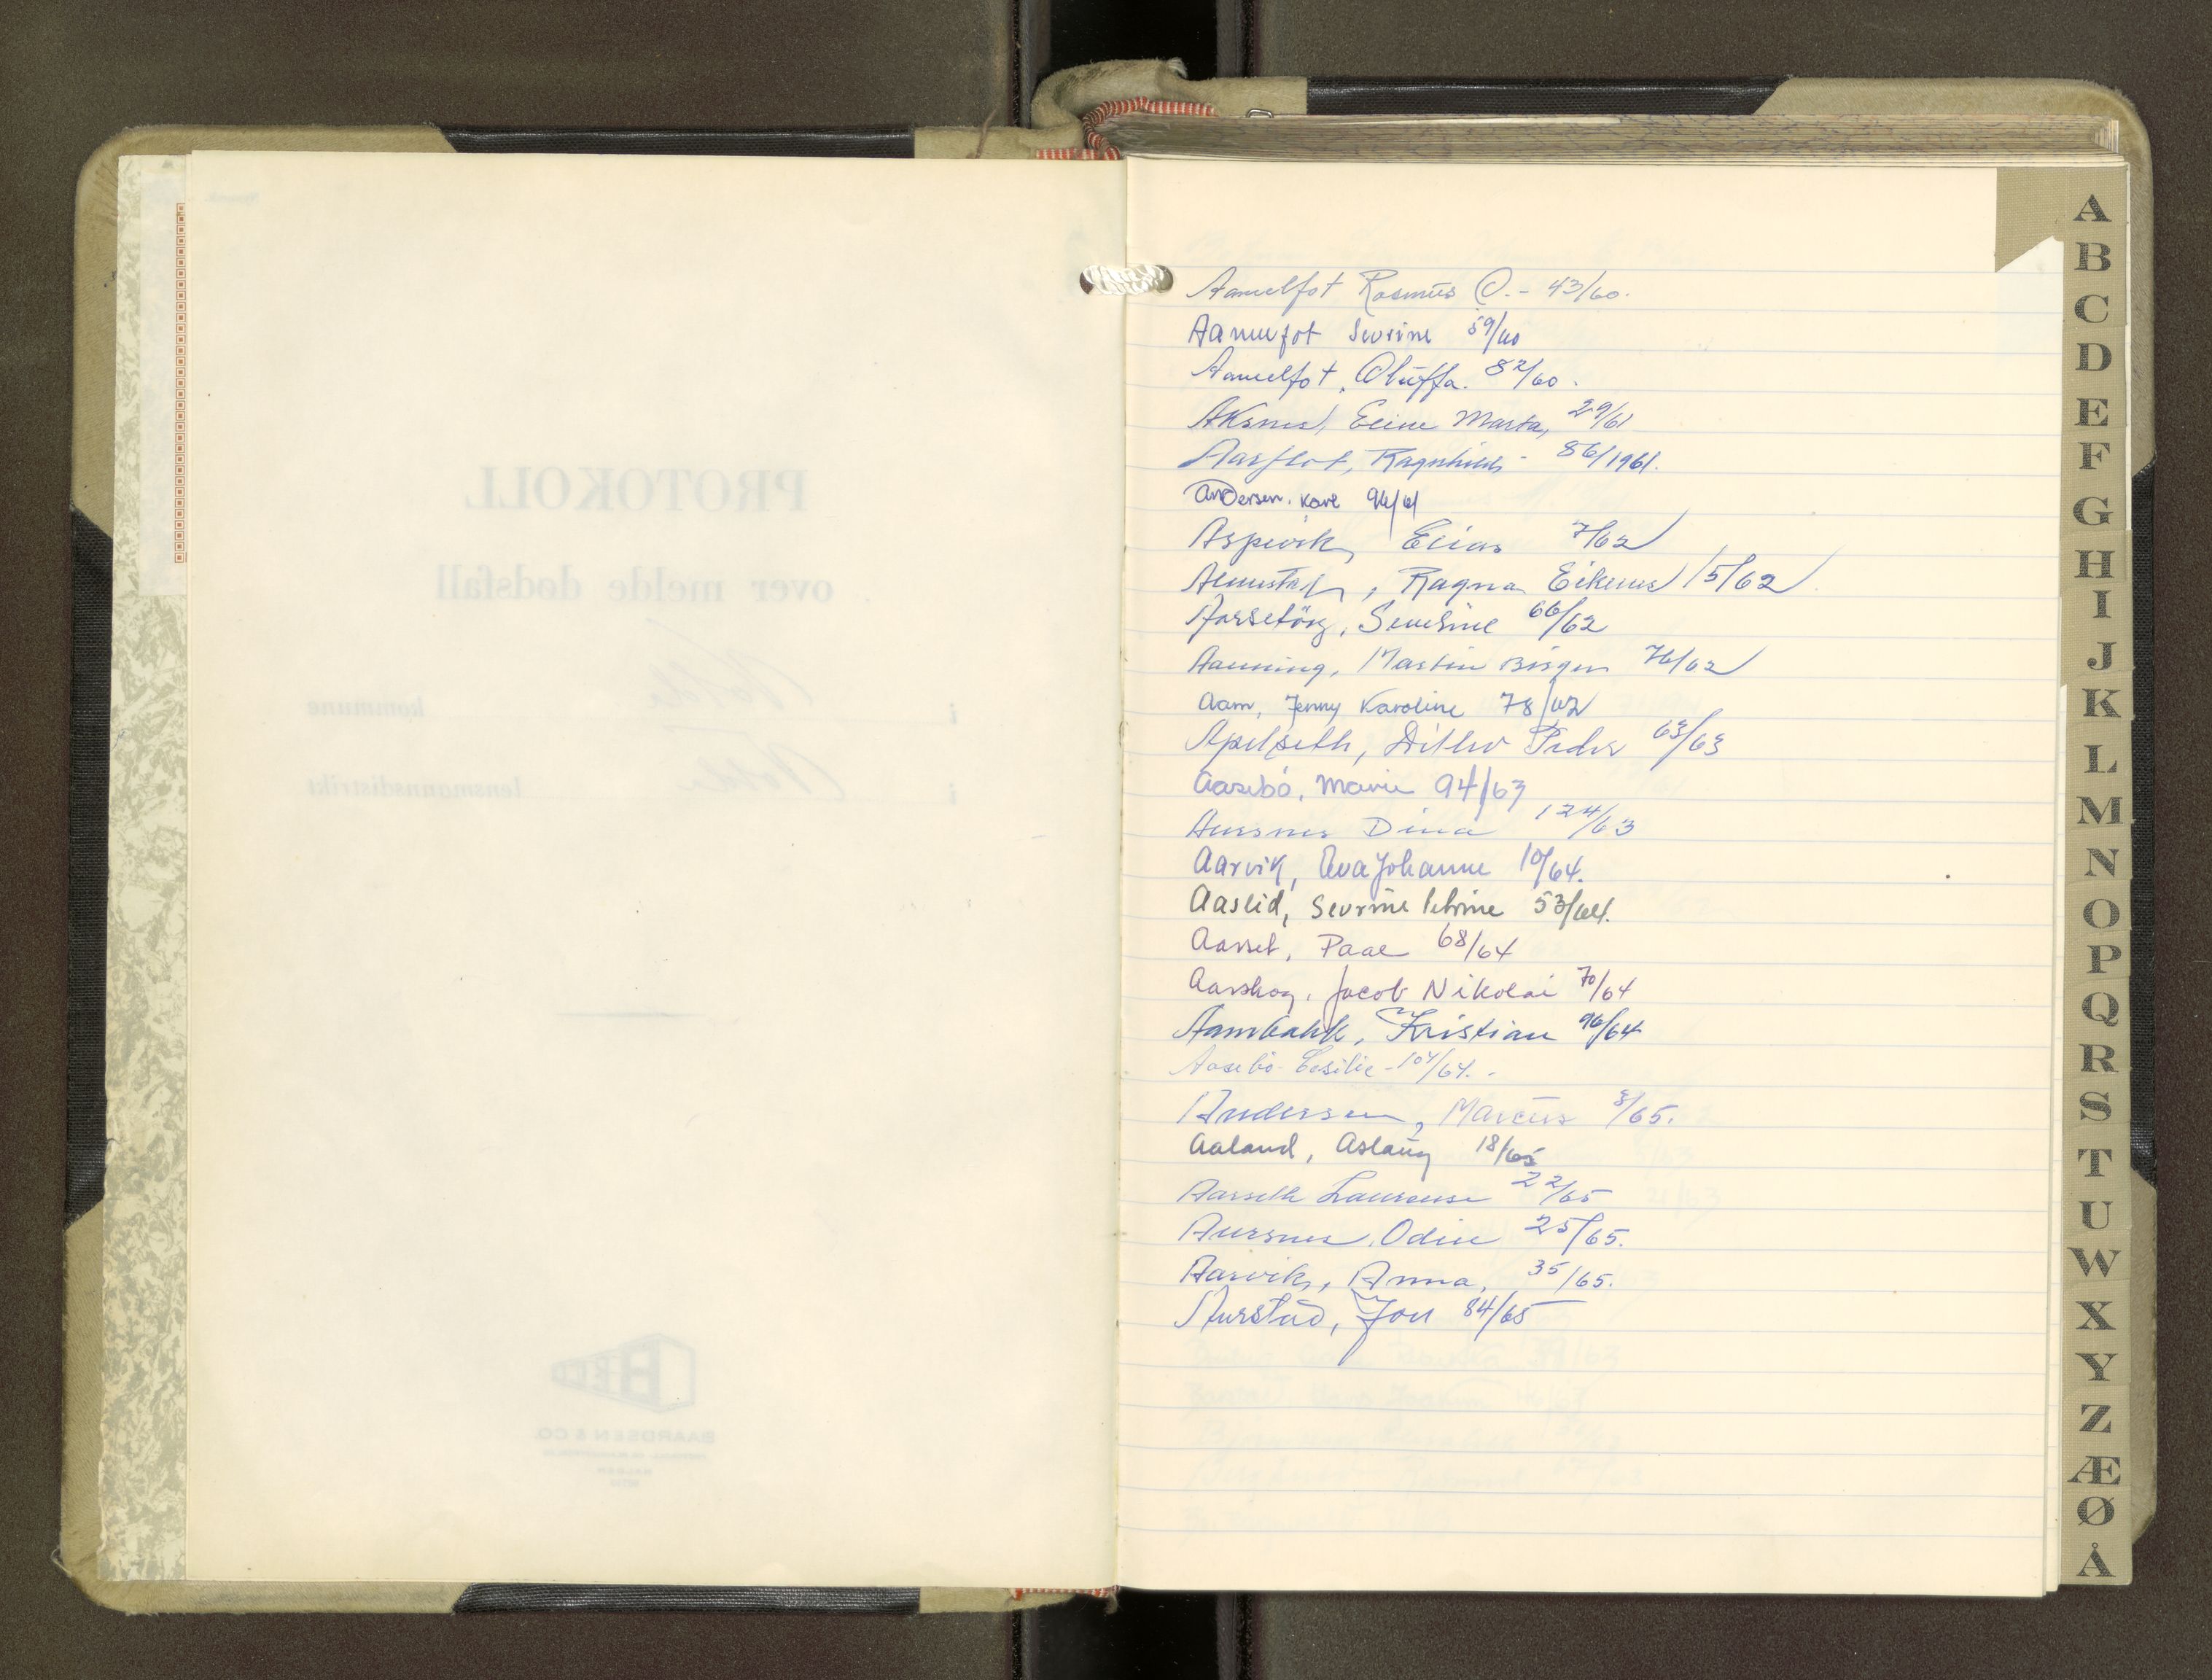 PROTOKOLL
over melde dødsfall
i Volda kommune
i Volda lensmannsdistrikt
BAARDSEN & CO.
Aamelfot Rasmus O. - 43/60.
Aamelfot Sevrine 59/60
Aamelfot, Oluffa. 82/60.
Aksnes, Eline Marta, 29/61
Aasflot, Ragnhild - 86/1961.
Andersen. Kare 94/61
Aspevik, Elias 7/62
Almestad, Ragna Eikenes 15/62
Aarsetöy, Sevrine 66/62
Aanning, Martin Birger 76/62
Aam, Jenny Karoline 78/62
Apelseth, Ditlev Peder 63/63
Aasebö, Marie 94/63
Aursnes Dina 124/63
Aarvik, Ava Johanne 10/64.
Aaslid, Sevrine Petrine 53/64.
Aarset, Paal 68/64
Aarskog, Jacob Nikolai 70/64
Aambakk, Kristian 96/64
Aasebö Cesilie - 104/64. -
Andersen, Marcus 3/65.
Aaland, Aslaug 18/65
Aarseth Laurense 22/65
Aursnes, Odin 25/65.
Aarvik, Anna, 35/65.
Aurstad, Jon 84/65
A
B
C
D
E
F
G
H
I
J
K
L
M
N
O
P
Q
R
S
T
U
W
X
Y
Z
Æ
Ø
Å